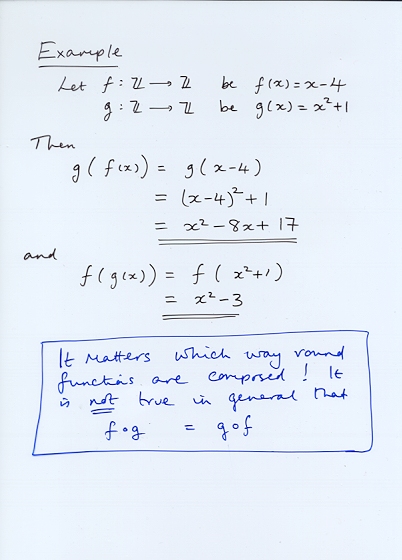 Example
Let f : ℤ → ℤ be f(x) = x - 4
g : ℤ → ℤ be g(x) = x² + 1
Then
g(f(x)) = g(x-4)
= (x-4)² + 1
= x² - 8x + 17
and
f(g(x)) = f(x²+1)
= x² - 3
It matters which way round
functions are composed! It
is not true in general that
f∘g = g∘f